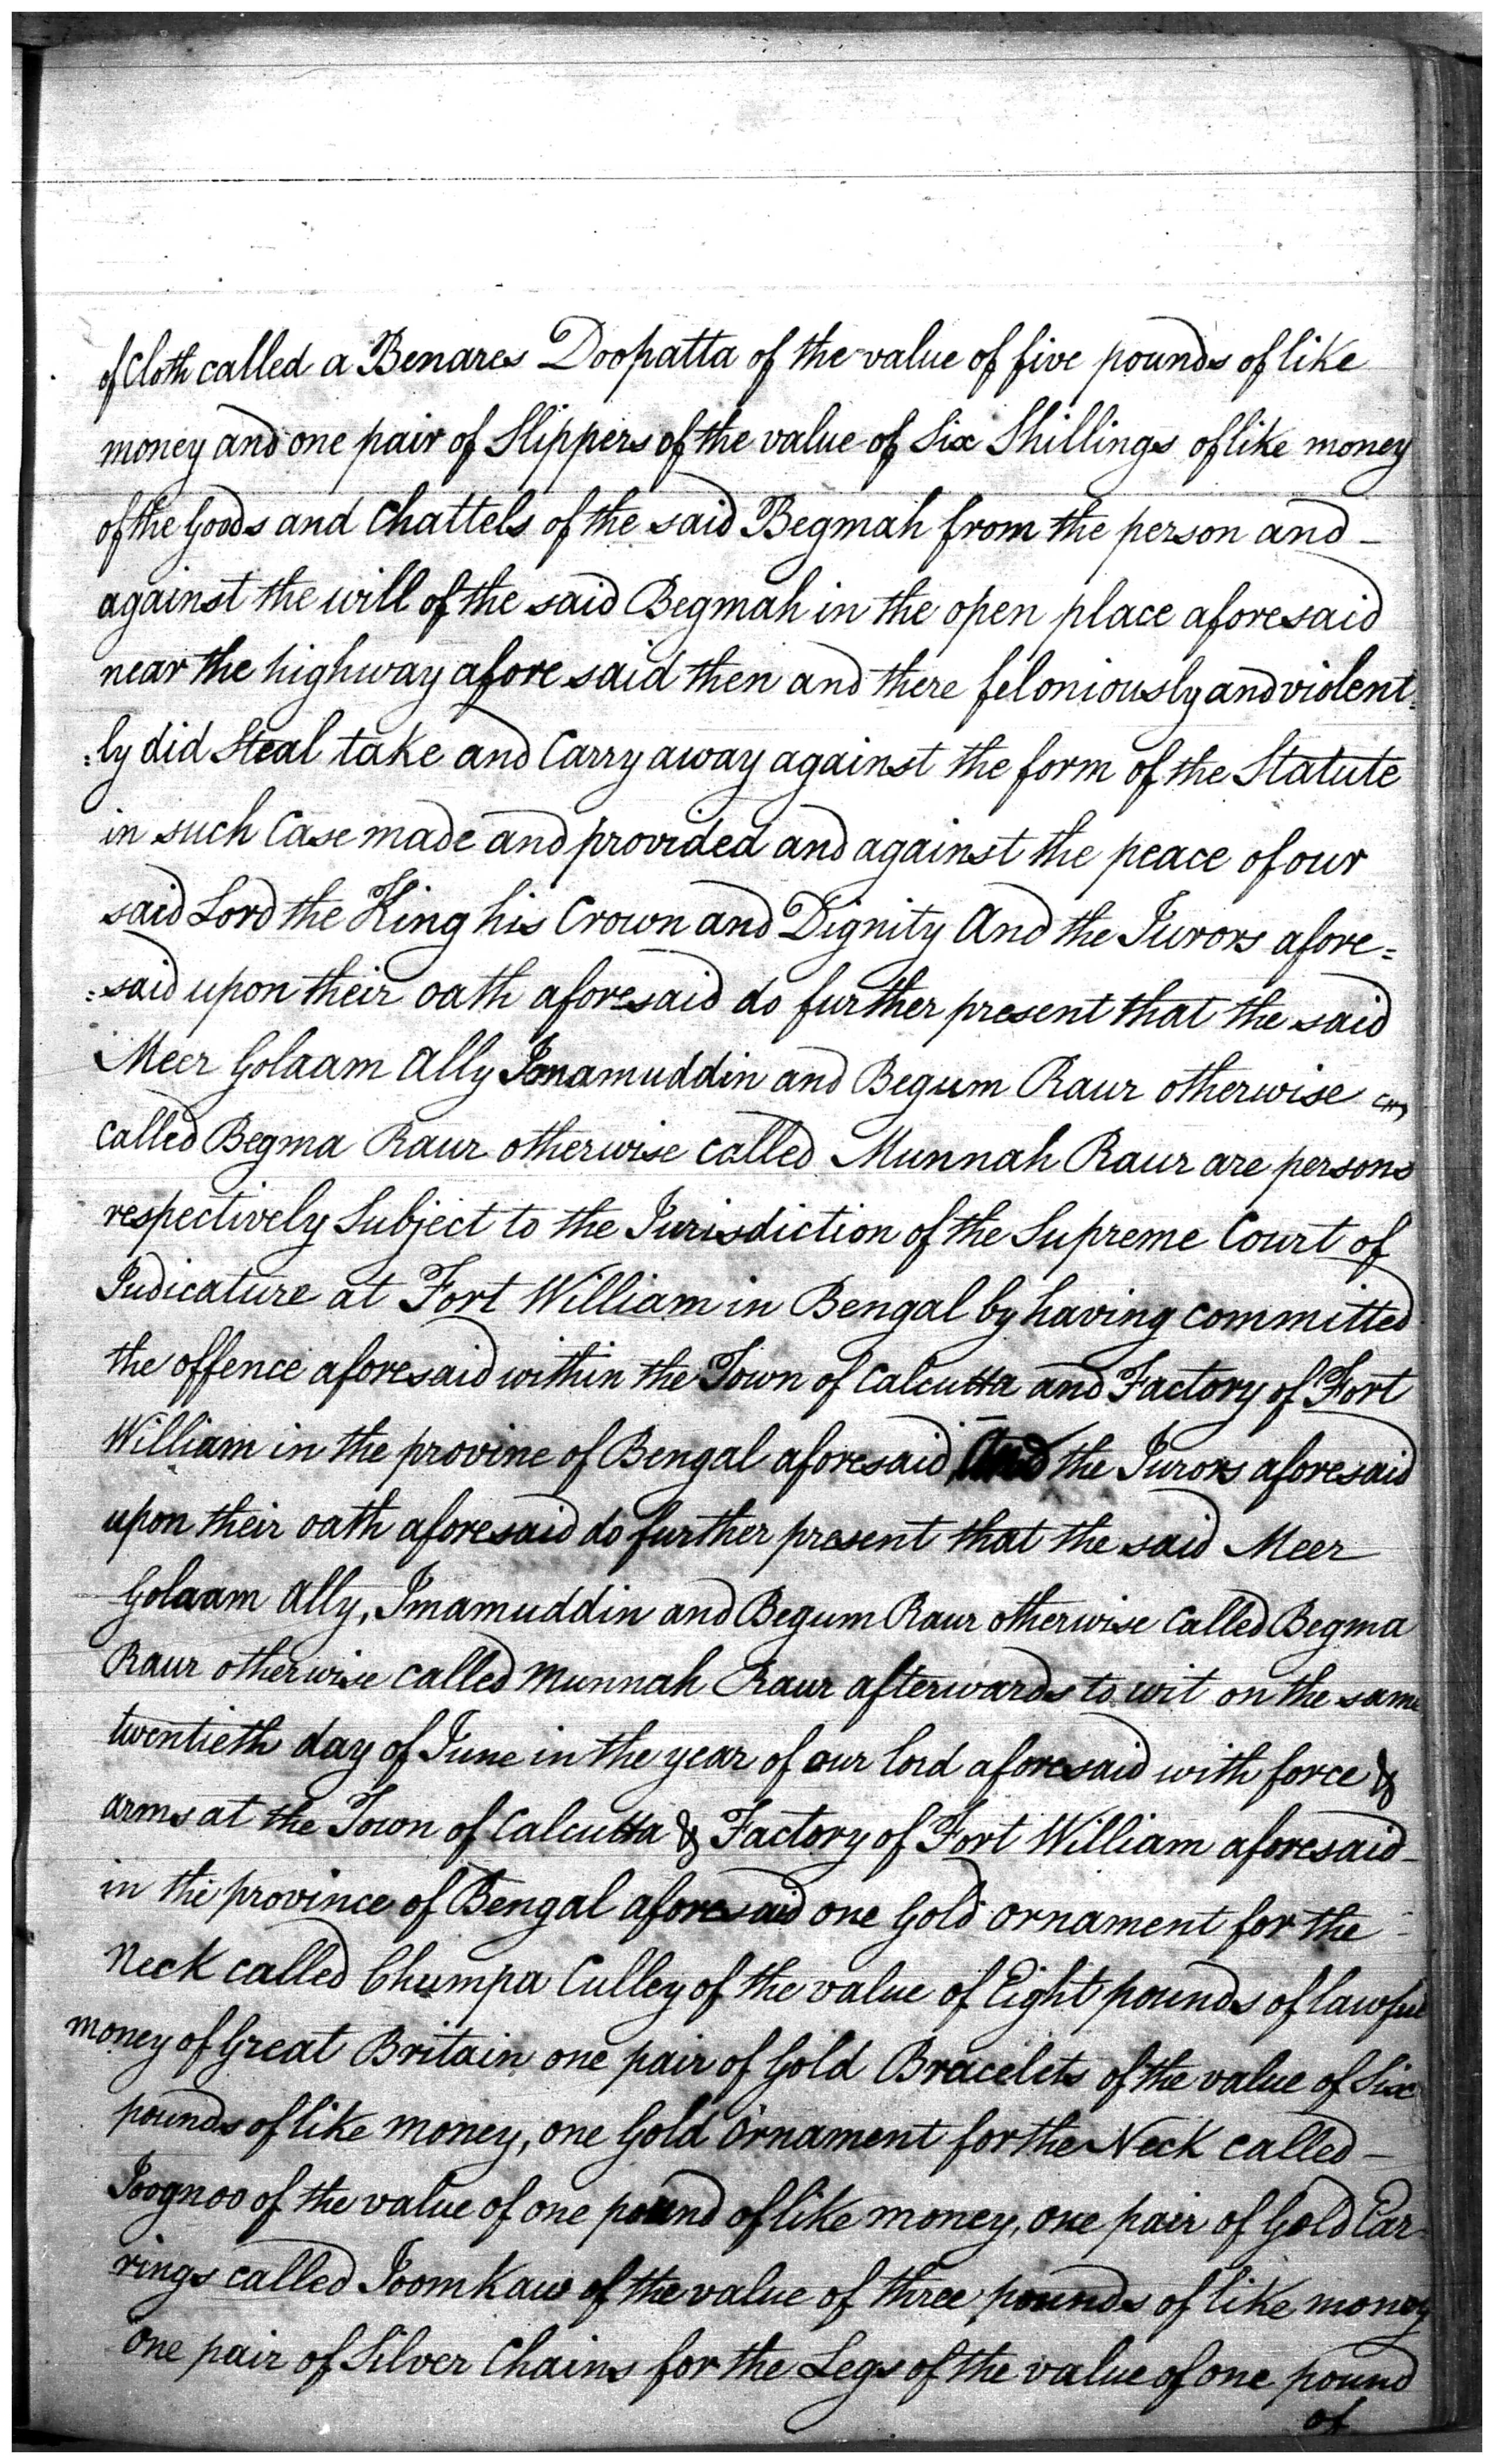 of Cloth called a Benares Doopatta of the value of five pounds of like
money and one pair of Slippers of the value of Six Shillings of like money
of the Goods and Chattels of the said Begmah from the person and -
against the will of the said Begmah in the open place aforesaid
near the highway afore said then and there feloniously and violent:
:ly did Steal take and Carry away against the form of the Statute
in such Case made and provided and against the peace of our
said Lord the King his Crown and Dignity And the Jurors afore=
:said upon their oath aforesaid do further present that the said
Meer Golaam Ally Imamuddin and Begum Raur otherwise
called Begma Raur otherwise called Munnah Raur are persons
respectively Subject to the Jurisdiction of the Supreme Court of
Judicature at Fort William in Bengal by having committed
the offence aforesaid within the Town of Calcutta and Factory of Fort
William in the provine of Bengal aforesaid And the Jurors aforesaid
upon their oath aforesaid do further present that the said Meer
Golaam Ally, Imamuddin and Begum Raur otherwise Called Begma
Raur otherwise called Munnah Raur afterwards to wit on the same
twentieth day of June in the year of our lord aforesaid with force &
arms at the Town of Calcutta & Factory of Fort William aforesaid -
in the province of Bengal aforesaid one Gold ornament for the -
Neck called Chumpa Culley of the value of Eight pounds of lawful
money of Great Britain one pair of Gold Bracelets of the value of Six
pounds of like money, one Gold Ornament for the Neck called -
Joognoo of the value of one pound of like money, one pair of Gold Ear-
rings called Joomkaw of the value of three pounds of like money
one pair of Silver Chains for the Legs of the value of one pound
of